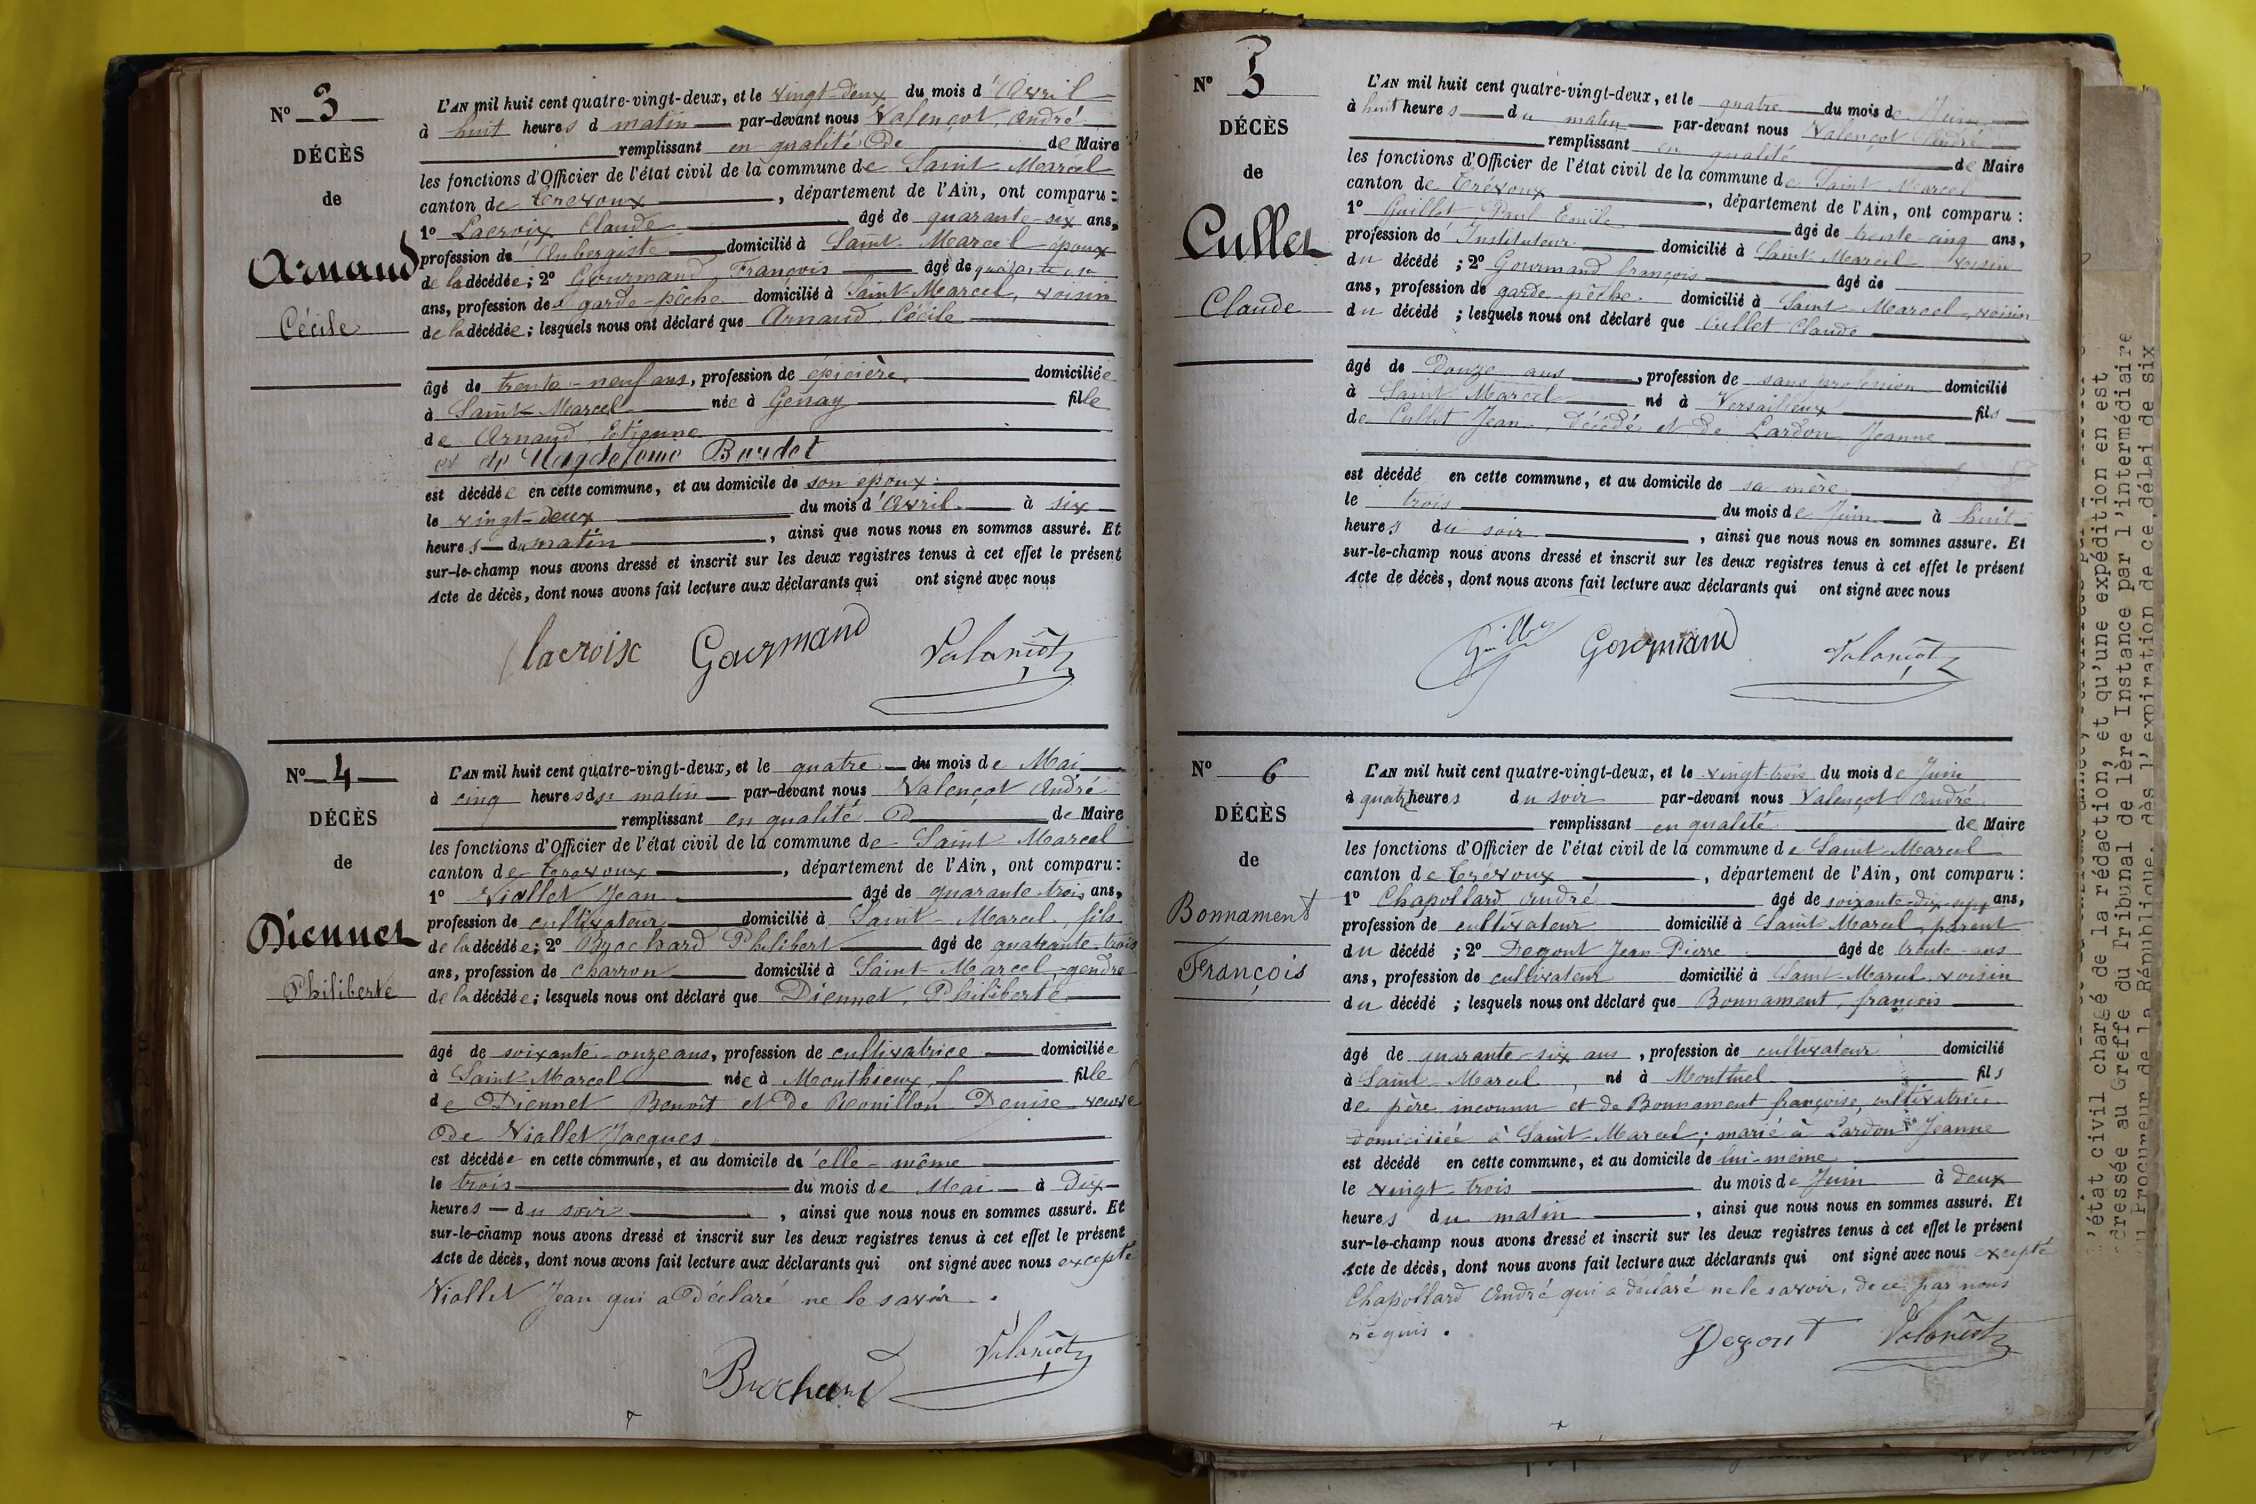 N° 3
DÉCÈS
de
Arnaud
Cécile
L'AN mil huit cent quatre-vingt-deux, et le vingt-deux du mois d'Avril
à huit heures d matin par-devant nous Valençot, André
remplissant en qualité de de Maire
les fonctions d'Officier de l'état civil de la commune de Saint-Marcel
canton de Trévoux, département de l'Ain, ont comparu :
1° Lacroix Claude âgé de quarante-six ans,
profession de Aubergiste domicilié à Saint-Marcel époux
de la décédée ; 2° Gourmand, François âgé de
ans, profession de garde-pêche domicilié à Saint-Marcel, voisin
de la décédée ; lesquels nous ont déclaré que Arnaud, Cécile
âgé de trente-neuf ans, profession de épicière domiciliée
à Saint-Marcel née à Genay fille
de Arnaud, Etienne
et de Magdeleine Bardot
est décédée en cette commune, et au domicile de son époux
le vingt-deux du mois d'Avril à six
heures du matin, ainsi que nous nous en sommes assuré. Et
sur-le-champ nous avons dressé et inscrit sur les deux registres tenus à cet effet le présent
Acte de décès, dont nous avons fait lecture aux déclarants qui ont signé avec nous
lacroix Gourmand Valançot
N° 4
DÉCÈS
de
Diennet
Philiberte
L'AN mil huit cent quatre-vingt-deux, et le quatre du mois de Mai
à cinq heures du matin par-devant nous Valençot André
remplissant en qualité d de Maire
les fonctions d'Officier de l'état civil de la commune de Saint-Marcel
canton de Trévoux, département de l'Ain, ont comparu :
1° Viallet Jean âgé de quarante-trois ans,
profession de cultivateur domicilié à Saint-Marcel, fils
de la décédée ; 2° Brochard Philibert âgé de quarante-trois
ans, profession de charron domicilié à Saint-Marcel, gendre
de la décédée ; lesquels nous ont déclaré que Diennet, Philiberte
âgé de soixante-onze ans, profession de cultivatrice domiciliée
à Saint-Marcel née à Monthieux fille
de Diennet Benoît et de Rouillon Denise veuve
de Viallet Jacques
est décédée en cette commune, et au domicile de elle-même
le trois du mois de Mai à dix
heures du soir, ainsi que nous nous en sommes assuré. Et
sur-le-champ nous avons dressé et inscrit sur les deux registres tenus à cet effet le présent
Acte de décès, dont nous avons fait lecture aux déclarants qui ont signé avec nous excepté
Viallet Jean qui a déclaré ne le savoir.
Brochard Valançot
N° 5
DÉCÈS
de
Cullet
Claude
L'AN mil huit cent quatre-vingt-deux, et le quatre du mois de Juin
à huit heures du matin par-devant nous Valençot André
remplissant en qualité de Maire
les fonctions d'Officier de l'état civil de la commune de Saint Marcel
canton de Trévoux, département de l'Ain, ont comparu :
1° Guillet Paul Emile âgé de trente-cinq ans,
profession de Instituteur domicilié à Saint Marcel voisin
du décédé ; 2° Gourmand françois âgé de
ans, profession de garde pêche domicilié à Saint-Marcel, voisin
du décédé ; lesquels nous ont déclaré que Cullet Claude
âgé de Douze ans, profession de sans profession domicilié
à Saint Marcel né à Versailleux fils
de Cullet Jean, décédé et de Lardon Jeanne
est décédé en cette commune, et au domicile de sa mère
le trois du mois de Juin à huit
heures du soir, ainsi que nous nous en sommes assuré. Et
sur-le-champ nous avons dressé et inscrit sur les deux registres tenus à cet effet le présent
Acte de décès, dont nous avons fait lecture aux déclarants qui ont signé avec nous
Gourmand Valançot
N° 6
DÉCÈS
de
Bonnament
François
L'AN mil huit cent quatre-vingt-deux, et le vingt-trois du mois de Juin
à quatre heures du soir par-devant nous Valençot André
remplissant en qualité de Maire
les fonctions d'Officier de l'état civil de la commune de Saint-Marcel
canton de Trévoux, département de l'Ain, ont comparu :
1° Chapollard André âgé de soixante-dix-sept ans,
profession de cultivateur domicilié à Saint-Marcel, parent
du décédé ; 2° Degout Jean-Pierre âgé de trente ans
ans, profession de cultivateur domicilié à Saint-Marcel, voisin
du décédé ; lesquels nous ont déclaré que Bonnament, françois
âgé de quarante-six ans, profession de cultivateur domicilié
à Saint Marcel, né à Montluel fils
de père inconnu et de Bonnament françoise, cultivatrice
domiciliée à Saint-Marcel ; marié à Lardon Jeanne
est décédé en cette commune, et au domicile de lui-même
le vingt-trois du mois de Juin à deux
heures du matin, ainsi que nous nous en sommes assuré. Et
sur-le-champ nous avons dressé et inscrit sur les deux registres tenus à cet effet le présent
Acte de décès, dont nous avons fait lecture aux déclarants qui ont signé avec nous excepté
Chapollard André qui a déclaré ne le savoir, de ce par nous
requis.
Degout Valançot
l'état civil chargé de la rédaction, et qu'une expédition en est
adressée au Greffe du Tribunal de 1ère Instance par l'intermédiaire
du Procureur de la République, dès l'expiration de ce délai de six